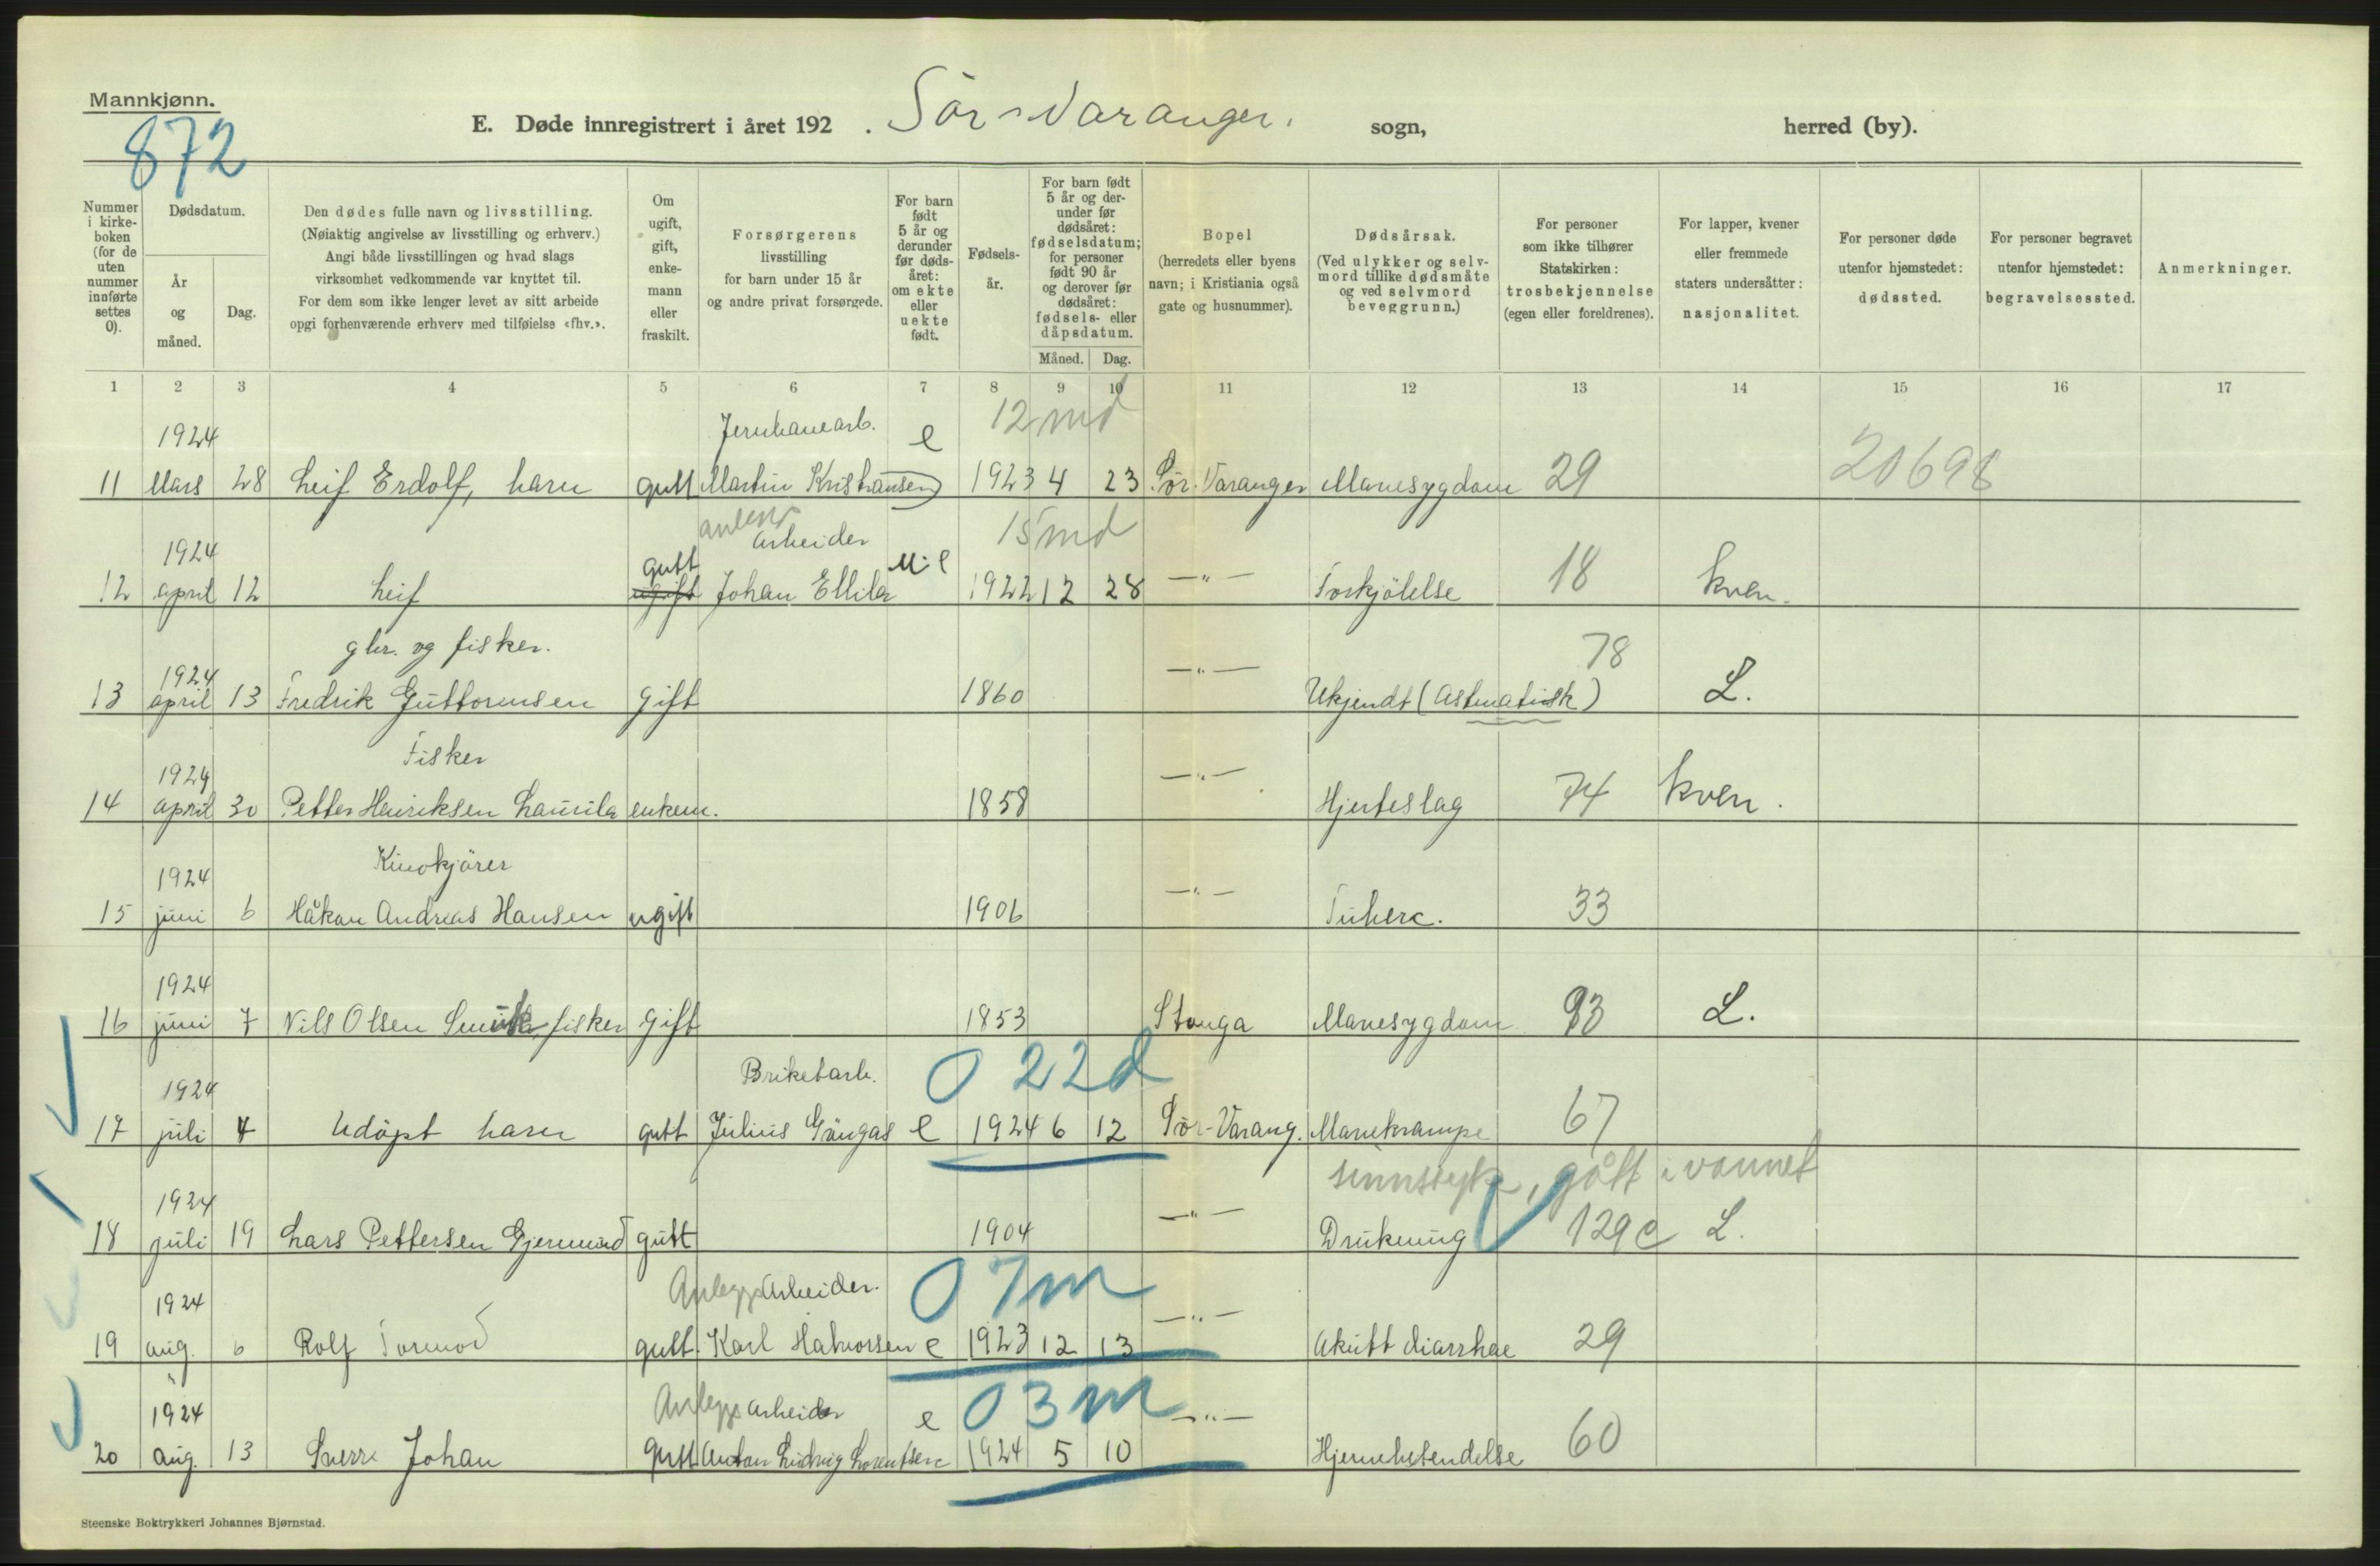 Mannkjønn.
872
E. Døde innregistrert i året 192 . Sör-Varanger. sogn, herred (by).
Nummer i kirkeboken (for de uten nummer innførte settes 0).
Dødsdatum.
År og måned.
Dag.
Den dødes fulle navn og livsstilling.
(Nøiaktig angivelse av livsstilling og erhverv.)
Angi både livsstillingen og hvad slags
virksomhet vedkommende var knyttet til.
For dem som ikke lenger levet av sitt arbeide
opgi forhenværende erhverv med tilføielse «fhv.».
Om ugift, gift, enkemann eller fraskilt.
Forsørgerens
livsstilling
for barn under 15 år
og andre privat forsørgede.
For barn født 5 år og derunder før dødsåret: om ekte eller uekte født.
Fødselsår.
For barn født 5 år og derunder før dødsåret: fødselsdatum; for personer født 90 år og derover før dødsåret: fødsels- eller dåpsdatum.
Måned. Dag.
Bopel
(herredets eller byens
navn; i Kristiania også
gate og husnummer).
Dødsårsak.
(Ved ulykker og selvmord tillike dødsmåte og ved selvmord beveggrunn.)
For personer
som ikke tilhører
Statskirken:
trosbekjennelse
(egen eller foreldrenes).
For lapper, kvener
eller fremmede
staters undersåtter:
nasjonalitet.
For personer døde
utenfor hjemstedet:
dødssted.
For personer begravet
utenfor hjemstedet:
begravelsessted.
Anmerkninger.
1 2 3 4 5 6 7 8 9 10 11 12 13 14 15 16 17
1924 Jernbanearb. e 12 md
11 Mars 28 Leif Erdolf, barn gutt Martin Kristiansen 1923 4 23 Sör-Varanger Mavesygdom 29 20698
1924 gutt arbeider 15 md
12 april 12 Leif ugift Johan Ellila e 1922 12 28 —"— Forkjölelse 18 kven.
gbr. og fisker.
1924 —"— 78
13 april 13 Fredrik Guttormsen gift 1860 Ukjendt (Astmatisk) L.
Fisker
1924 —"—
14 april 30 Petter Henriksen Laurila enkem. 1858 Hjerteslag 74 kven.
Kinokjörer
1924 —"—
15 juni 6 Håkon Andreas Hansen ugift 1906 Tuberc. 33
1924
16 juni 7 Nils Olsen fisker gift 1853 Stonga Mavesygdom 93 L.
1924 Briketarb. 0 22d
17 juli 4 Udöpt barn gutt Julius e 1924 6 12 Sör-Varang. Mavekrampe 67
sinnssyk, gått i vannet
1924 —"—
18 juli 19 Lars Pettersen Gjermund gutt 1904 Drukning 129c L.
Anleggsarbeider. 0 7m
1924 —"—
19 aug. 6 Rolf Tormod gutt Karl Halvorsen e 1923 12 13 Akutt diarrhae 29
Anleggsarbeider e 0 3m
1924 —"—
20 aug. 13 Sverre Johan gutt Anton Ludvig Lorentsen 1924 5 10 Hjernebetendelse 60
Steenske Boktrykkeri Johannes Bjørnstad.